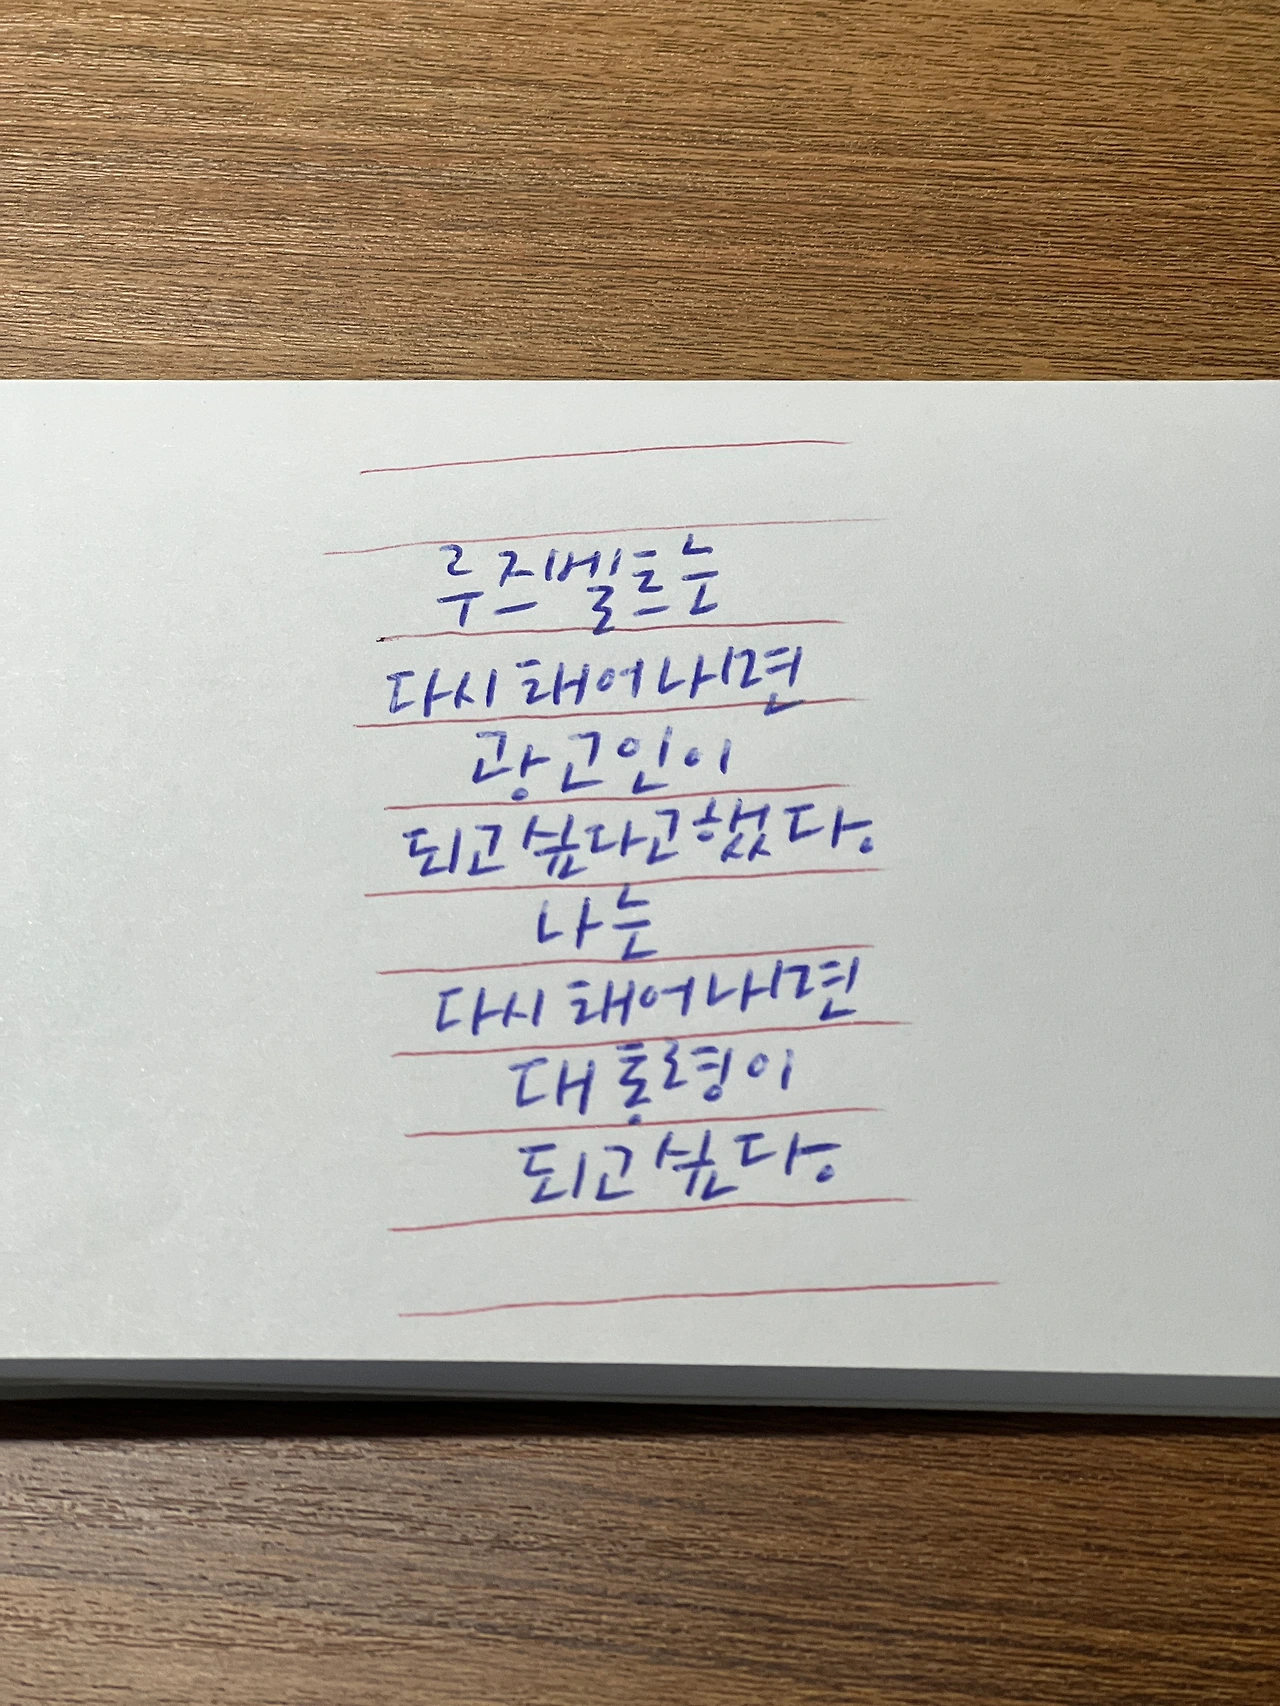 루즈벨트는
다시 태어나면
광고인이
되고 싶다고 했다.
나는
다시 태어나면
대통령이
되고 싶다.